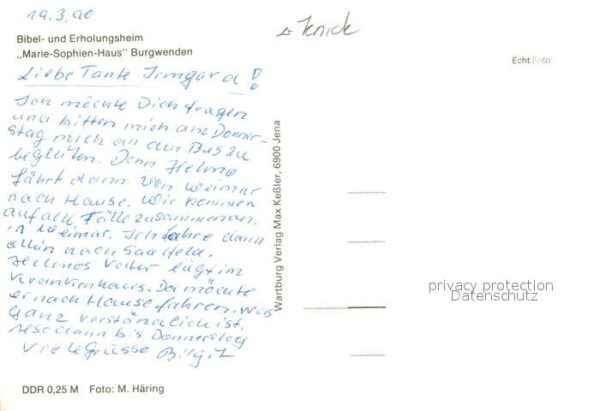 19.3.90
Bibel- und Erholungsheim
„Marie-Sophien-Haus" Burgwenden
Liebe Tante Irmgard!
Ich möchte Dich fragen
und bitten mich am Donner-
stag mich an den Bus zu
begleiten. Denn
fährt dann von Weimar
nach Hause. Wir kommen
auf alle Fälle zusammen
in Weimar. Ich fahre dann
allein nach Saalfeld.
Vater liegt im
Krankenhaus. Da möchte
er nach Hause fahren. Was
ganz verständlich ist.
also dann bis Donnerstag
Viele Grüsse
DDR 0,25 M Foto: M. Häring
Wartburg Verlag Max Keßler, 6900 Jena
Echt Foto
privacy protection
Datenschutz